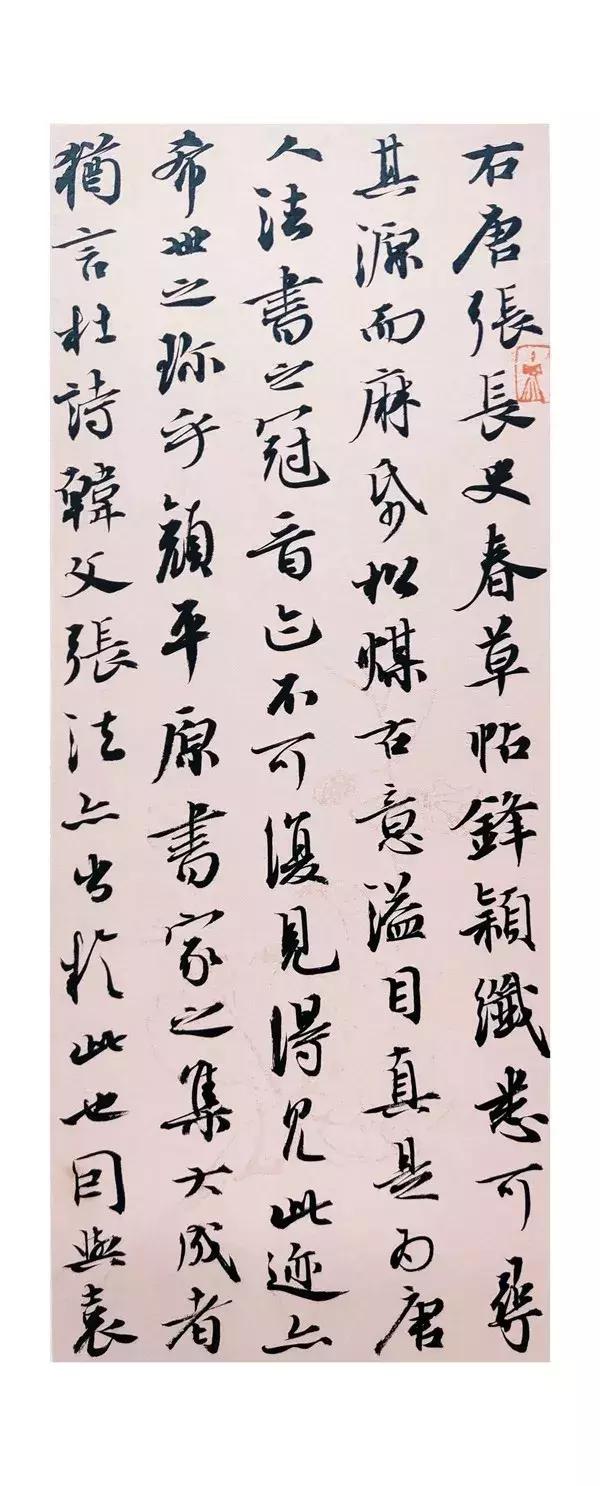 右唐張長史春草帖鋒穎纖悉可尋
其源而麻昏松煤古意溢目真是為唐
人法書之冠晉迹不可復見得見此迹亦
希世之珍乎顏平原書家之集大成者
猶言杜詩韓文張法亦出於此也因與袁